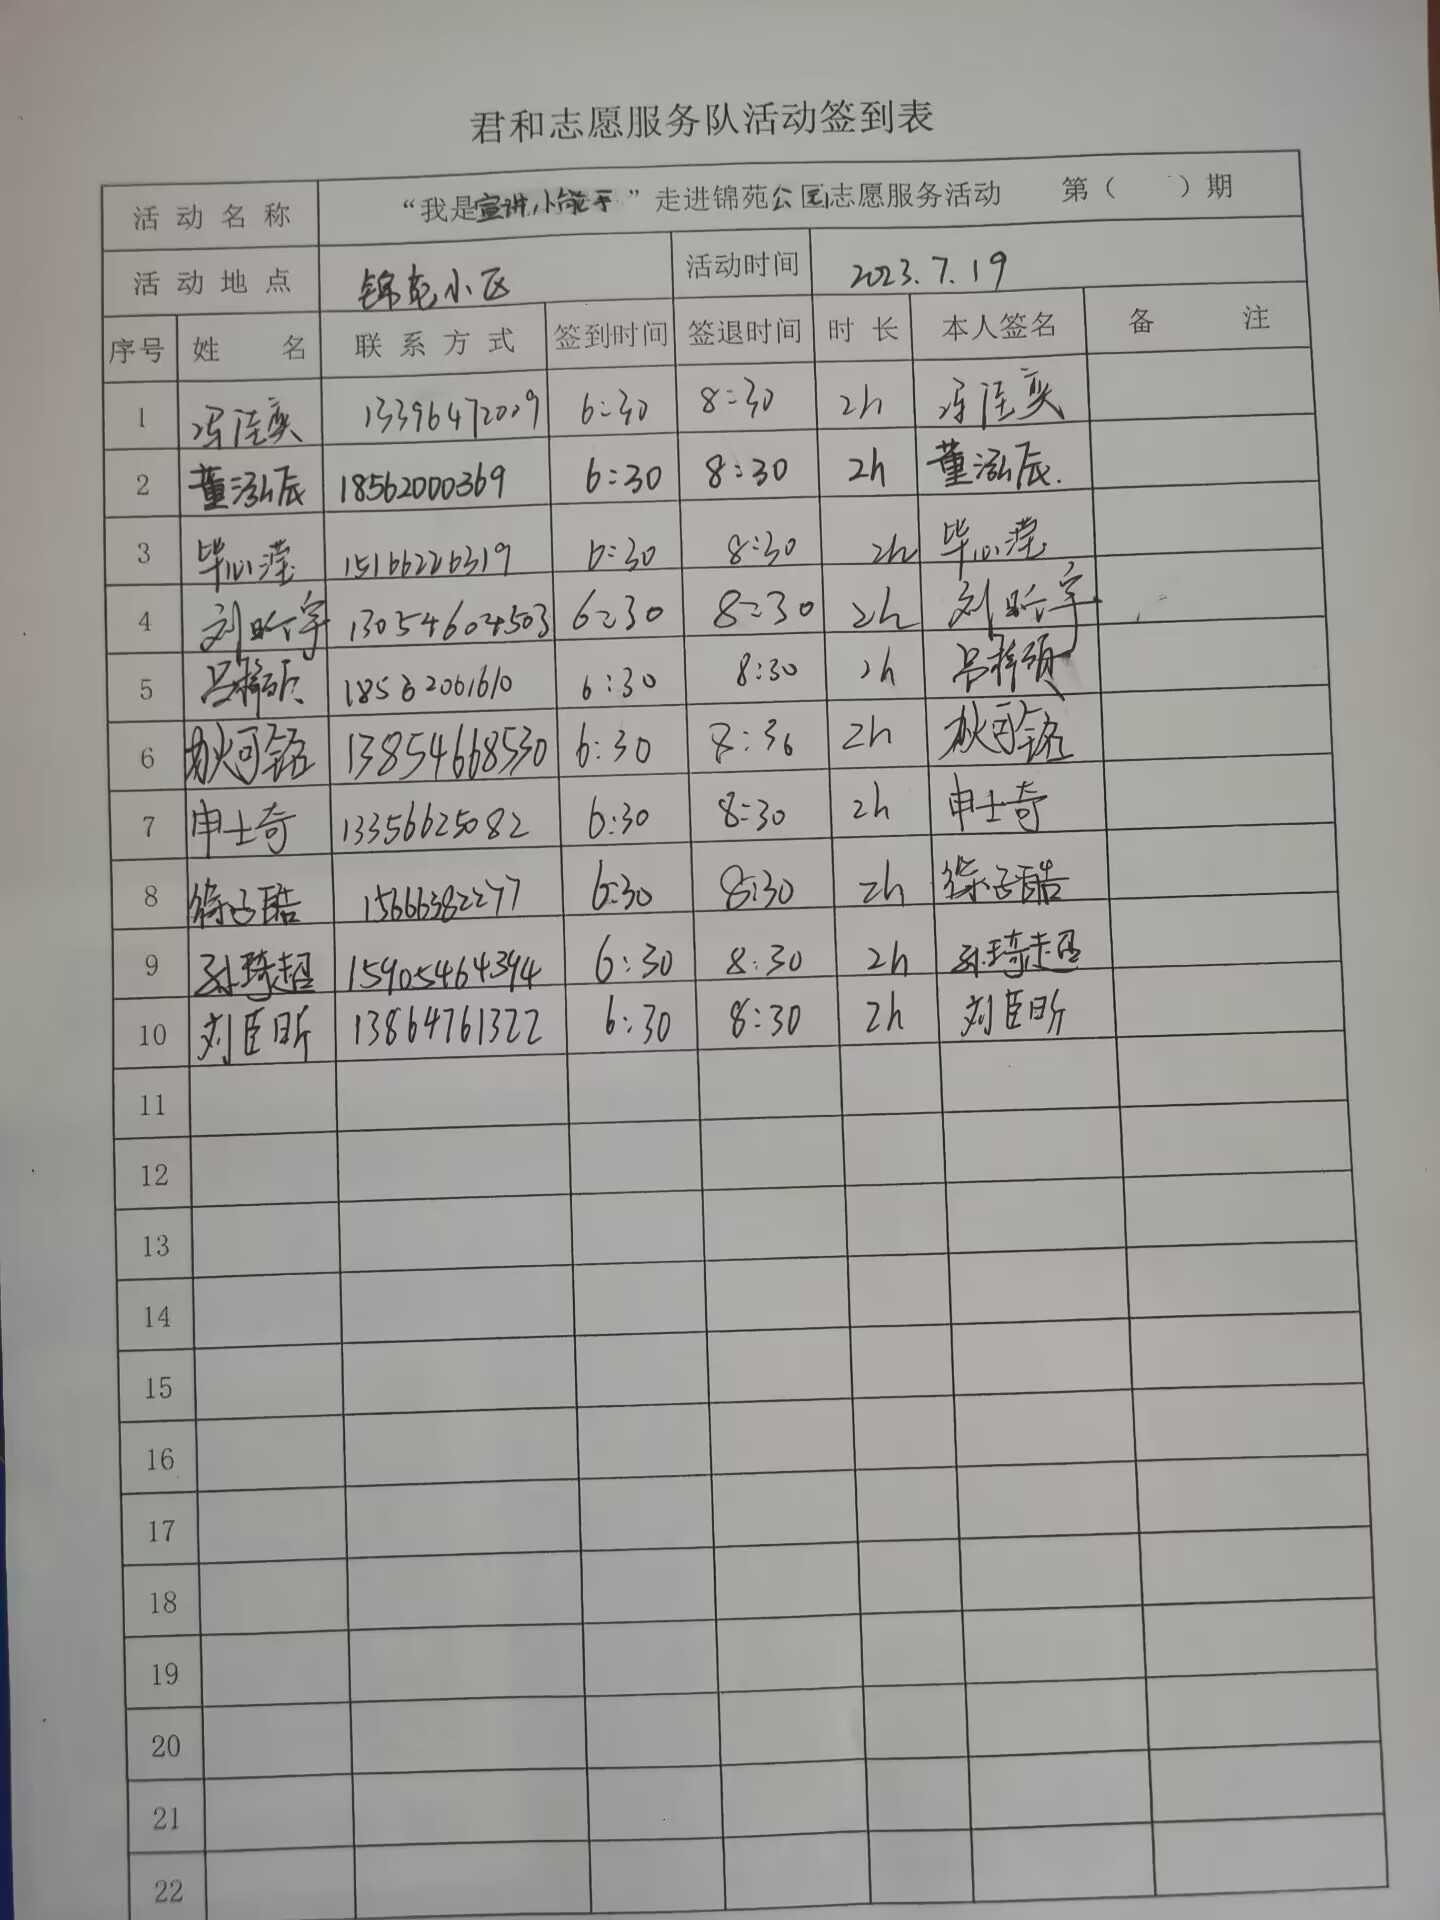 君和志愿服务队活动签到表
活动名称 “我是宣讲小能手”走进锦苑公园志愿服务活动 第（ ）期
活动地点 锦苑小区 活动时间 2023.7.19
序号 姓名 联系方式 签到时间 签退时间 时长 本人签名 备注
1 冯佳奕 13396472009 6:30 8:30 2h 冯佳奕
2 董泓辰 18562000369 6:30 8:30 2h 董泓辰.
3 毕心滢 15166226319 6:30 8:30 2h 毕心滢
4 刘晗宇 13054604503 6:30 8:30 2h 刘晗宇
5 吕梓硕 18562061610 6:30 8:30 2h 吕梓硕
6 狄可铭 13854668530 6:30 8:30 2h 狄可铭
7 申士奇 13356625082 6:30 8:30 2h 申士奇
8 徐子皓 15666382277 6:30 8:30 2h 徐子皓
9 孙琦超 15905464394 6:30 8:30 2h 孙琦超
10 刘臣昕 13864761322 6:30 8:30 2h 刘臣昕
11
12
13
14
15
16
17
18
19
20
21
22